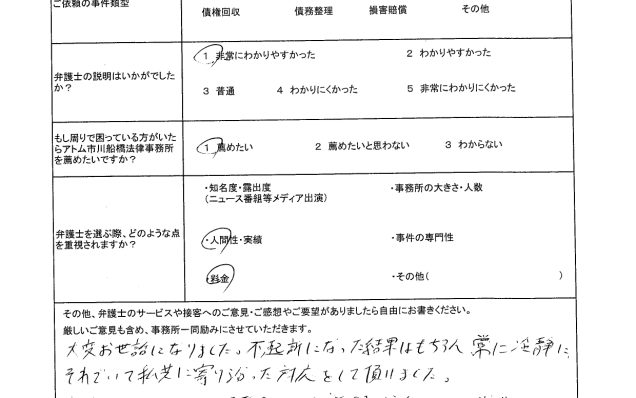 ご依頼の事件類型
債権回収 債務整理 損害賠償 その他
弁護士の説明はいかがでした
か?
1 非常にわかりやすかった 2 わかりやすかった
3 普通 4 わかりにくかった 5 非常にわかりにくかった
もし周りで困っている方がいた
らアトム市川船橋法律事務所
を薦めたいですか?
1 薦めたい 2 薦めたいと思わない 3 わからない
弁護士を選ぶ際、どのような点
を重視されますか?
・知名度・露出度 ・事務所の大きさ・人数
(ニュース番組等メディア出演)
・人間性・実績 ・事件の専門性
・料金 ・その他( )
その他、弁護士のサービスや接客へのご意見・ご感想やご要望がありましたら自由にお書きください。
厳しいご意見も含め、事務所一同励みにさせていただきます。
大変お世話になりました。不起訴になった結果はもちろん 常に冷静に、
それでいて私共に寄りそった対応をして頂けました。